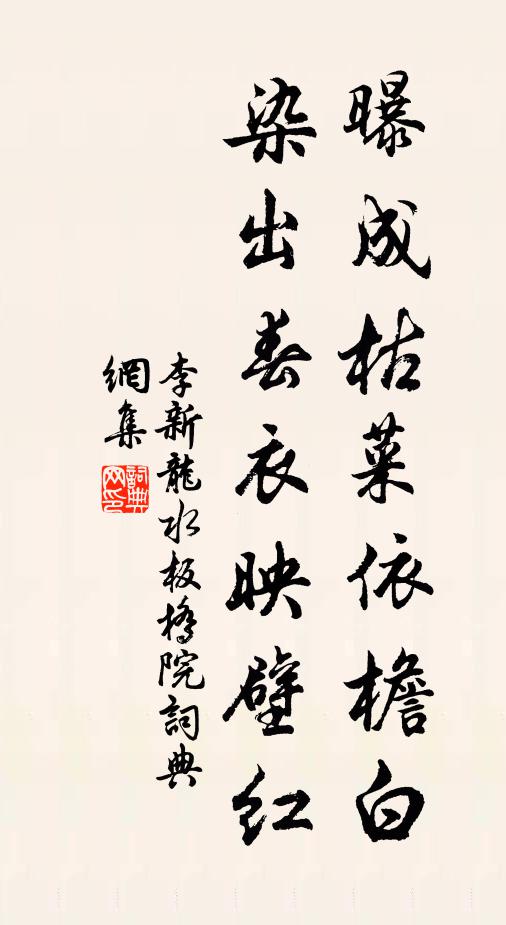 曝成枯菜依檐白
染出春衣映壁紅
李新龍水板橋院詞典
網集
詞典
网印